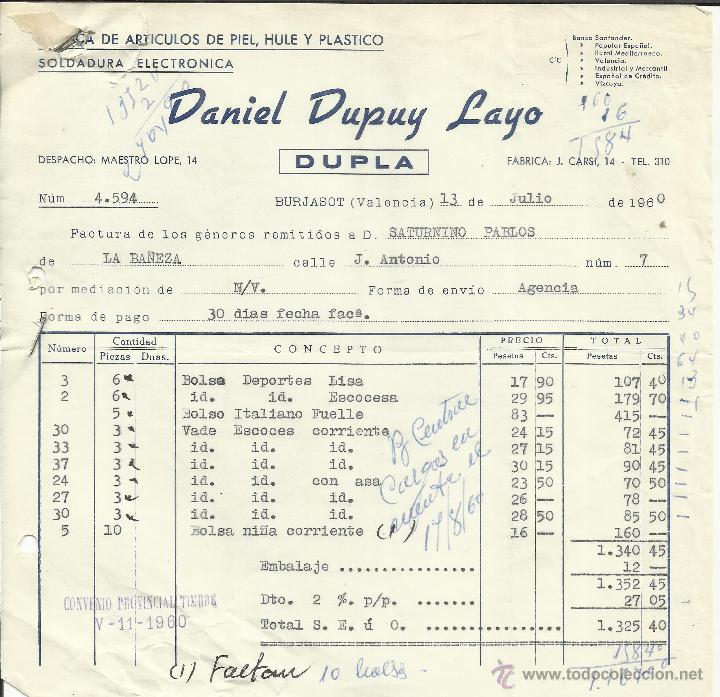 CA DE ARTICULOS DE PIEL, HULE Y PLASTICO
SOLDADURA ELECTRONICA
C/C
Banco Santander.
» Popular Español.
» Rural Mediterraneo.
» Valencia.
» Industrial y Mercantil
» Español de Crédito.
» Vizcaya.
Daniel Dupuy Layo
160
16
1584
DESPACHO: MAESTRO LOPE, 14
DUPLA
FABRICA: J. CARSI, 14 - TEL. 310
Núm 4.594
BURJASOT (Valencia) 13 de Julio de 1960
Factura de los géneros remitidos a D. SATURNINO PABLOS
de LA BAÑEZA calle J. Antonio núm. 7
por mediación de N/V. Forma de envío Agencia
Forma de pago 30 dias fecha facª.
Número Cantidad Piezas Dnas. CONCEPTO PRECIO Pesetas Cts. TOTAL Pesetas Cts.
3 6 Bolsa Deportes Lisa 17 90 107 40
2 6 id. id. Escocesa 29 95 179 70
5 Bolso Italiano Fuelle 83 — 415 —
30 3 Vade Escoces corriente 24 15 72 45
33 3 id. id. id. 27 15 81 45
37 3 id. id. id. 30 15 90 45
24 3 id. id. con asa 23 50 70 50
27 3 id. id. id. 26 — 78 —
30 3 id. id. id. 28 50 85 50
5 10 Bolsa niña corriente (1) 16 — 160 —
1.340 45
Embalaje ............... 12 —
1.352 45
Dto. 2 %. p/p. ......... 27 05
Total S. E. ú O. ....... 1.325 40
cargos en
17/8/60
CONVENIO PROVINCIAL TIMBRE
V-11-1960
(1) Faltan 10 bolsas -
1584
todocoleccion.net